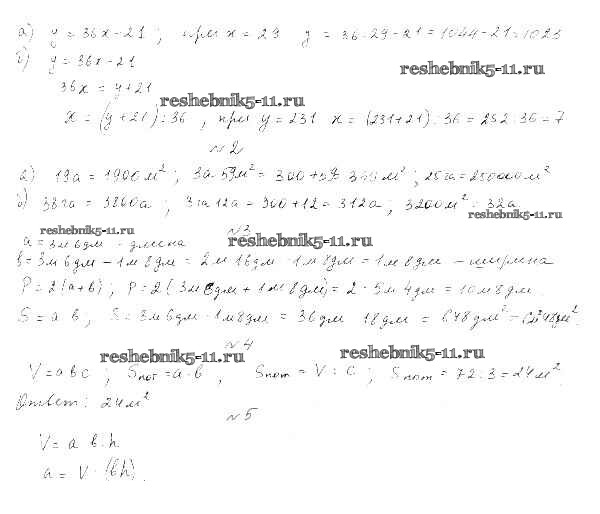 а) y = 36x - 21 ; при x = 29 y = 36·29 - 21 = 1044 - 21 = 1023
б) y = 36x - 21
reshebnik5-11.ru
36x = y + 21
reshebnik5-11.ru
x = (y + 21) : 36 , при y = 231 x = (231 + 21) : 36 = 252 : 36 = 7
№2
а) 19а = 1900 м² ; 3а 59 м² = 300 + 59 м² ; 25га = 250000 м²
б) 38га = 3800а ; 3га 12а = 300 + 12 = 312а ; 3200 м² = 32а
reshebnik5-11.ru
reshebnik5-11.ru
№3
reshebnik5-11.ru
a = 3м 6дм - длина
b = 3м 6дм - 1м 8дм = 2м 16дм - 1м 8дм = 1м 8дм - ширина
P = 2(a + b) ; P = 2(3м 6дм + 1м 8дм) = 2 · 5м 4дм = 10м 8дм
S = a b ; S = 3м 6дм · 1м 8дм = 36дм 18дм = 648дм² =
№4
reshebnik5-11.ru
reshebnik5-11.ru
V = a b c ; Sпот = a · b , Sпот = V : c ; Sпот = 72 : 3 = 24 м²
Ответ: 24 м²
№5
V = a b h
a = V : (bh).